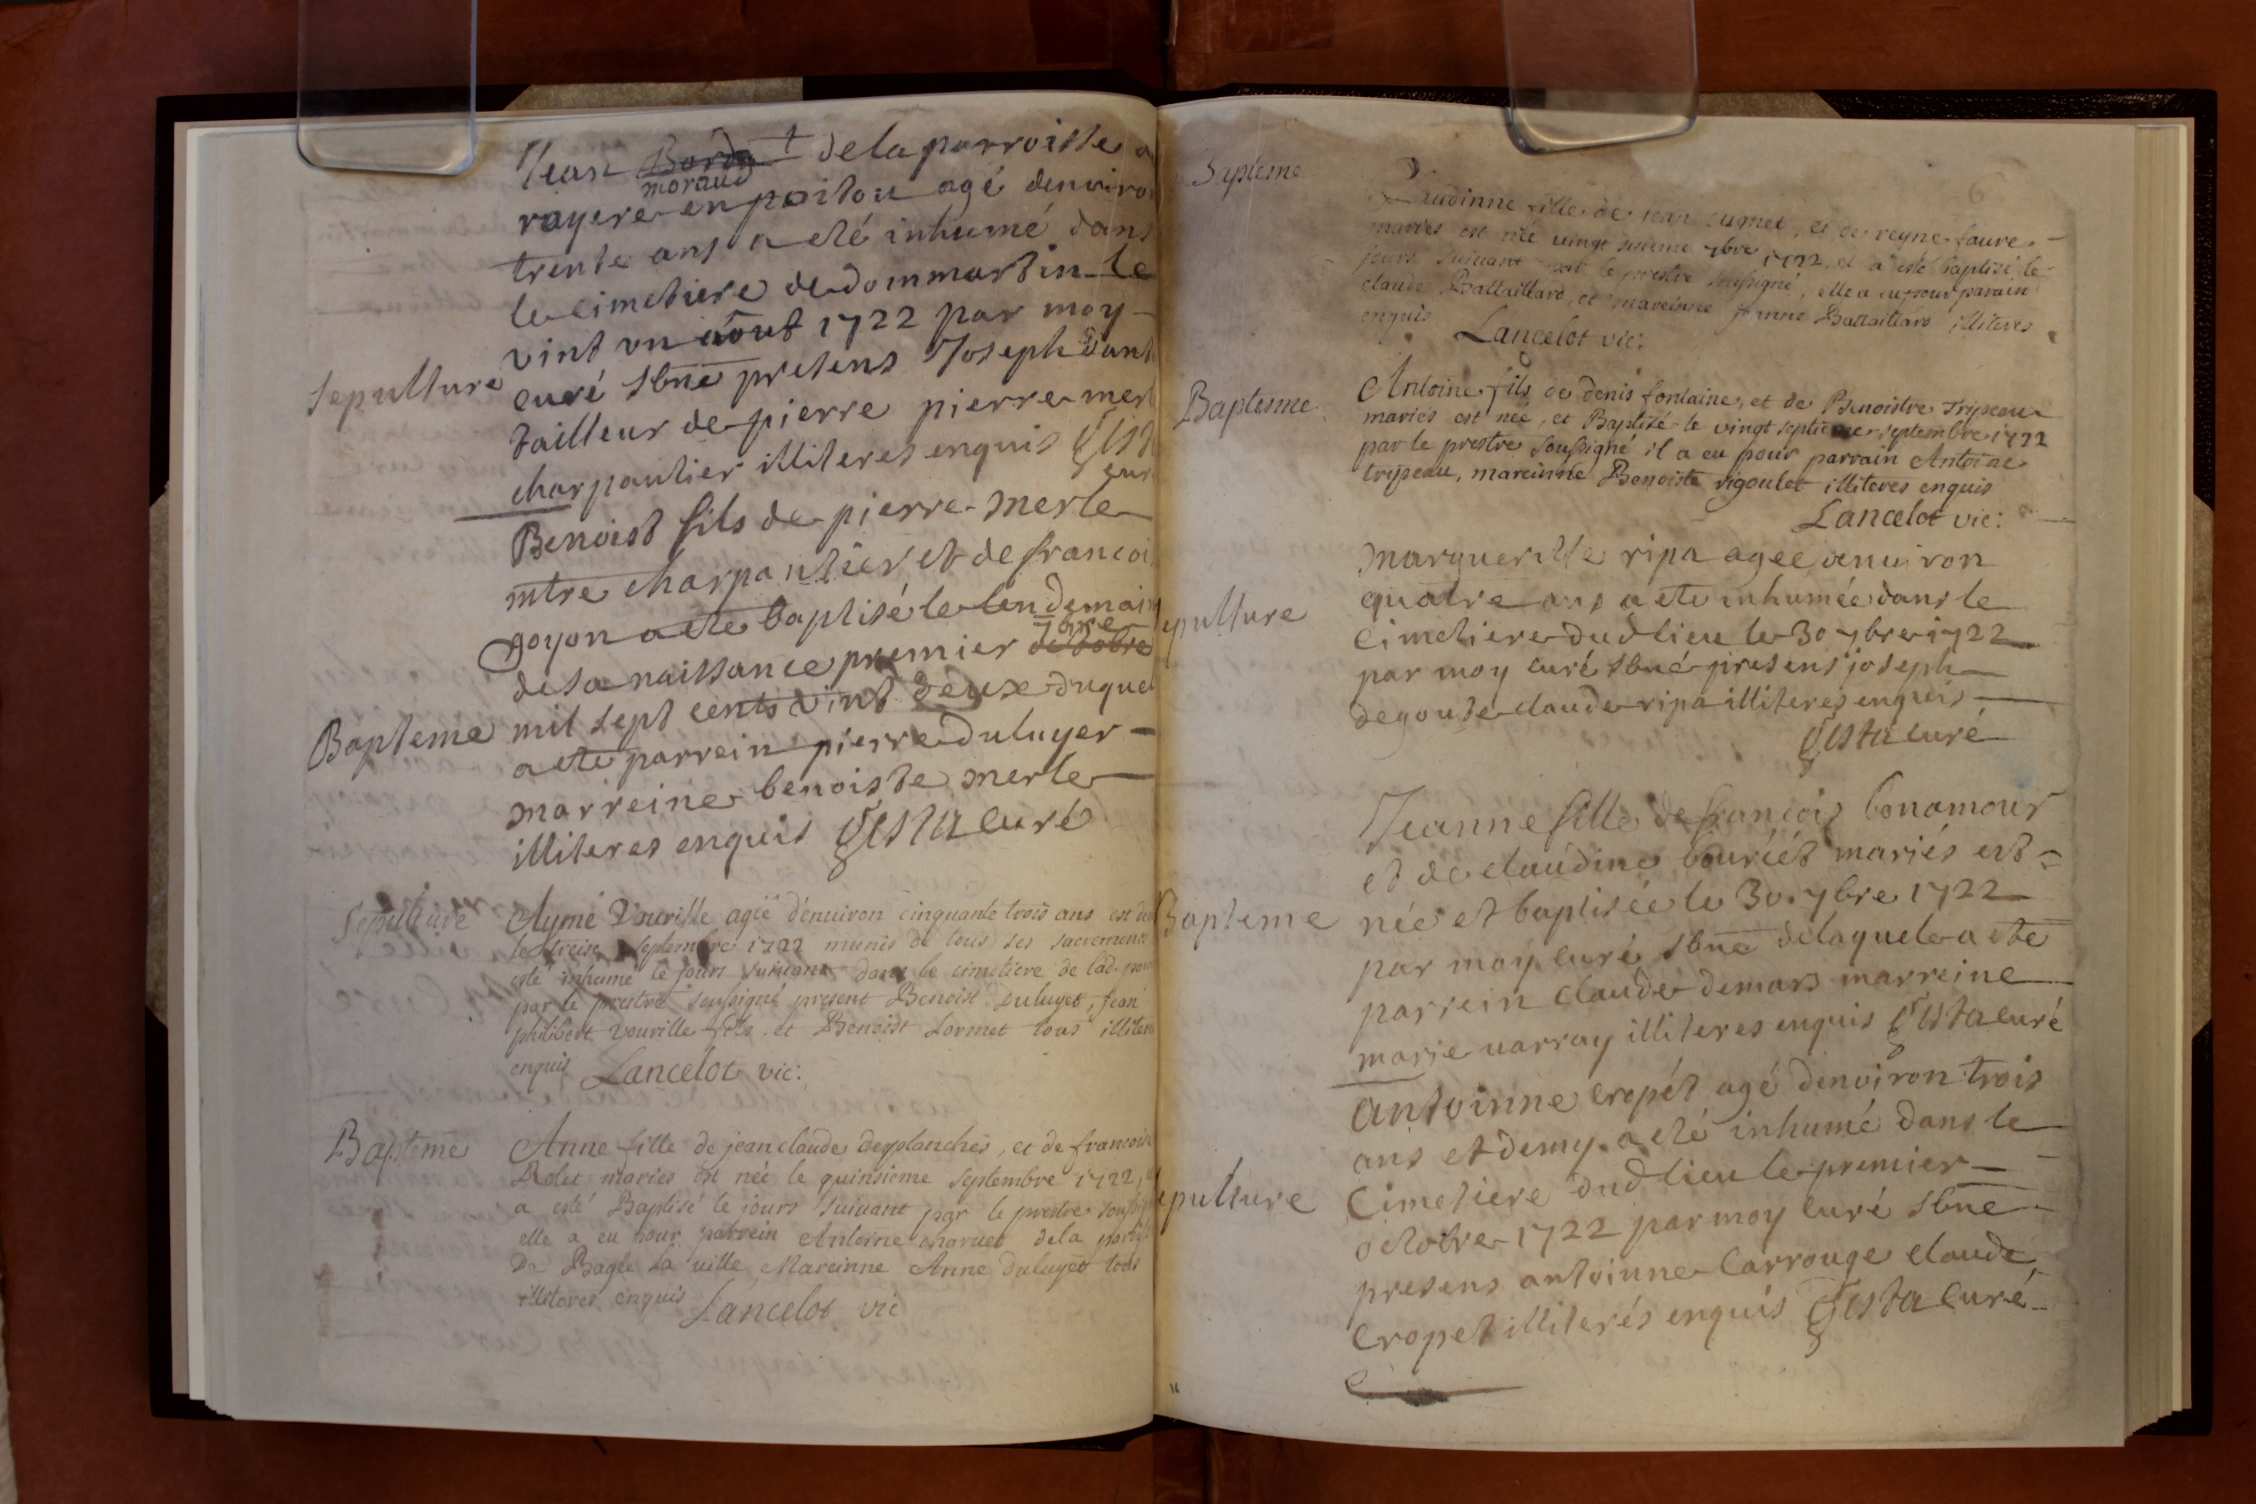 Jean Borda † de la parroisse
moraud
rayere en poitou agé denviron
trente ans a eté inhumé dans
le cimetiere de dommartin le
vint un aout 1722 par moy
Sepulture
curé sbne presens Joseph
tailleur de pierre pierre mer
charpantier illiteres enquis Gista
cur
Benoist fils de pierre Merle
mtre charpantier et de francoi
goyon a ete baptisé le lendemain
7bre
de sa naissance premier octobre
mil sept cents vint deux duquel
Bapteme
a ete parrein pierre duluyer
marreine benoiste merle
illiteres enquis Gista curé
Sepulture
Aymé Vouville agéé d'enuiron cinquante trois ans est
le treize septembre 1722 munis de tous ses sacrements
esté inhumé le jours suiuant dans le cimetiere de lad.
par le prestre soussigné present Benoist duluyet, jean
philibert vouville fils et Benoist Lormet tous illiteres
enquis Lancelot vic:
Bapteme
Anne fille de jean claude desplanches, et de francoise
Rolet mariés est née le quinsieme septembre 1722,
a esté Baptisé le jours suiuant par le prestre soussigné
elle a eu pour parrein Antoine charuet de la
De Bagé la uille Mareinne Anne duluyet tous
illiteres enquis Lancelot vic
6
Bapteme
Claudinne fille de jean cugnet, et de reyne faure
mariés est née uingt sixieme 7bre 1722, et a esté baptizé le
jours suiuant par le prestre soussigné, elle a eu pour parain
claude Battaillard, et mareinne jeanne Battaillard illiteres
enquis Lancelot vic:
Baptesme
Antoine fils de denis fontaine, et de Benoistre Tripeau
mariés est née, et Baptizé le vingt septieme septembre 1722
par le prestre soussigné il a eu pour parrain Antoine
tripeau, mareinne Benoiste rigoulet illiteres enquis
Lancelot vic:
epulture
margueritte ripa agee denuiron
quatre ans a ete inhumée dans le
cimetiere dudlieu le 30 7bre 1722
par moy curé sbné presens joseph
degoute claude ripa illiteres enquis
Gista curé
Bapteme
Jeanne fille de françois bonamour
et de claudine bouriét mariés est
née et baptisée le 30. 7bre 1722
par moy curé sbne delaquele a ete
parrein claude demars marreine
marie uarray illiteres enquis Gista curé
epulture
antoinne cropét agé denviron trois
ans et demy a eté inhumé dans le
Cimetiere dudlieu le premier
octobre 1722 par moy curé sbne
presens antoinne Carrouge claude
Cropet illiterés enquis Gista curé